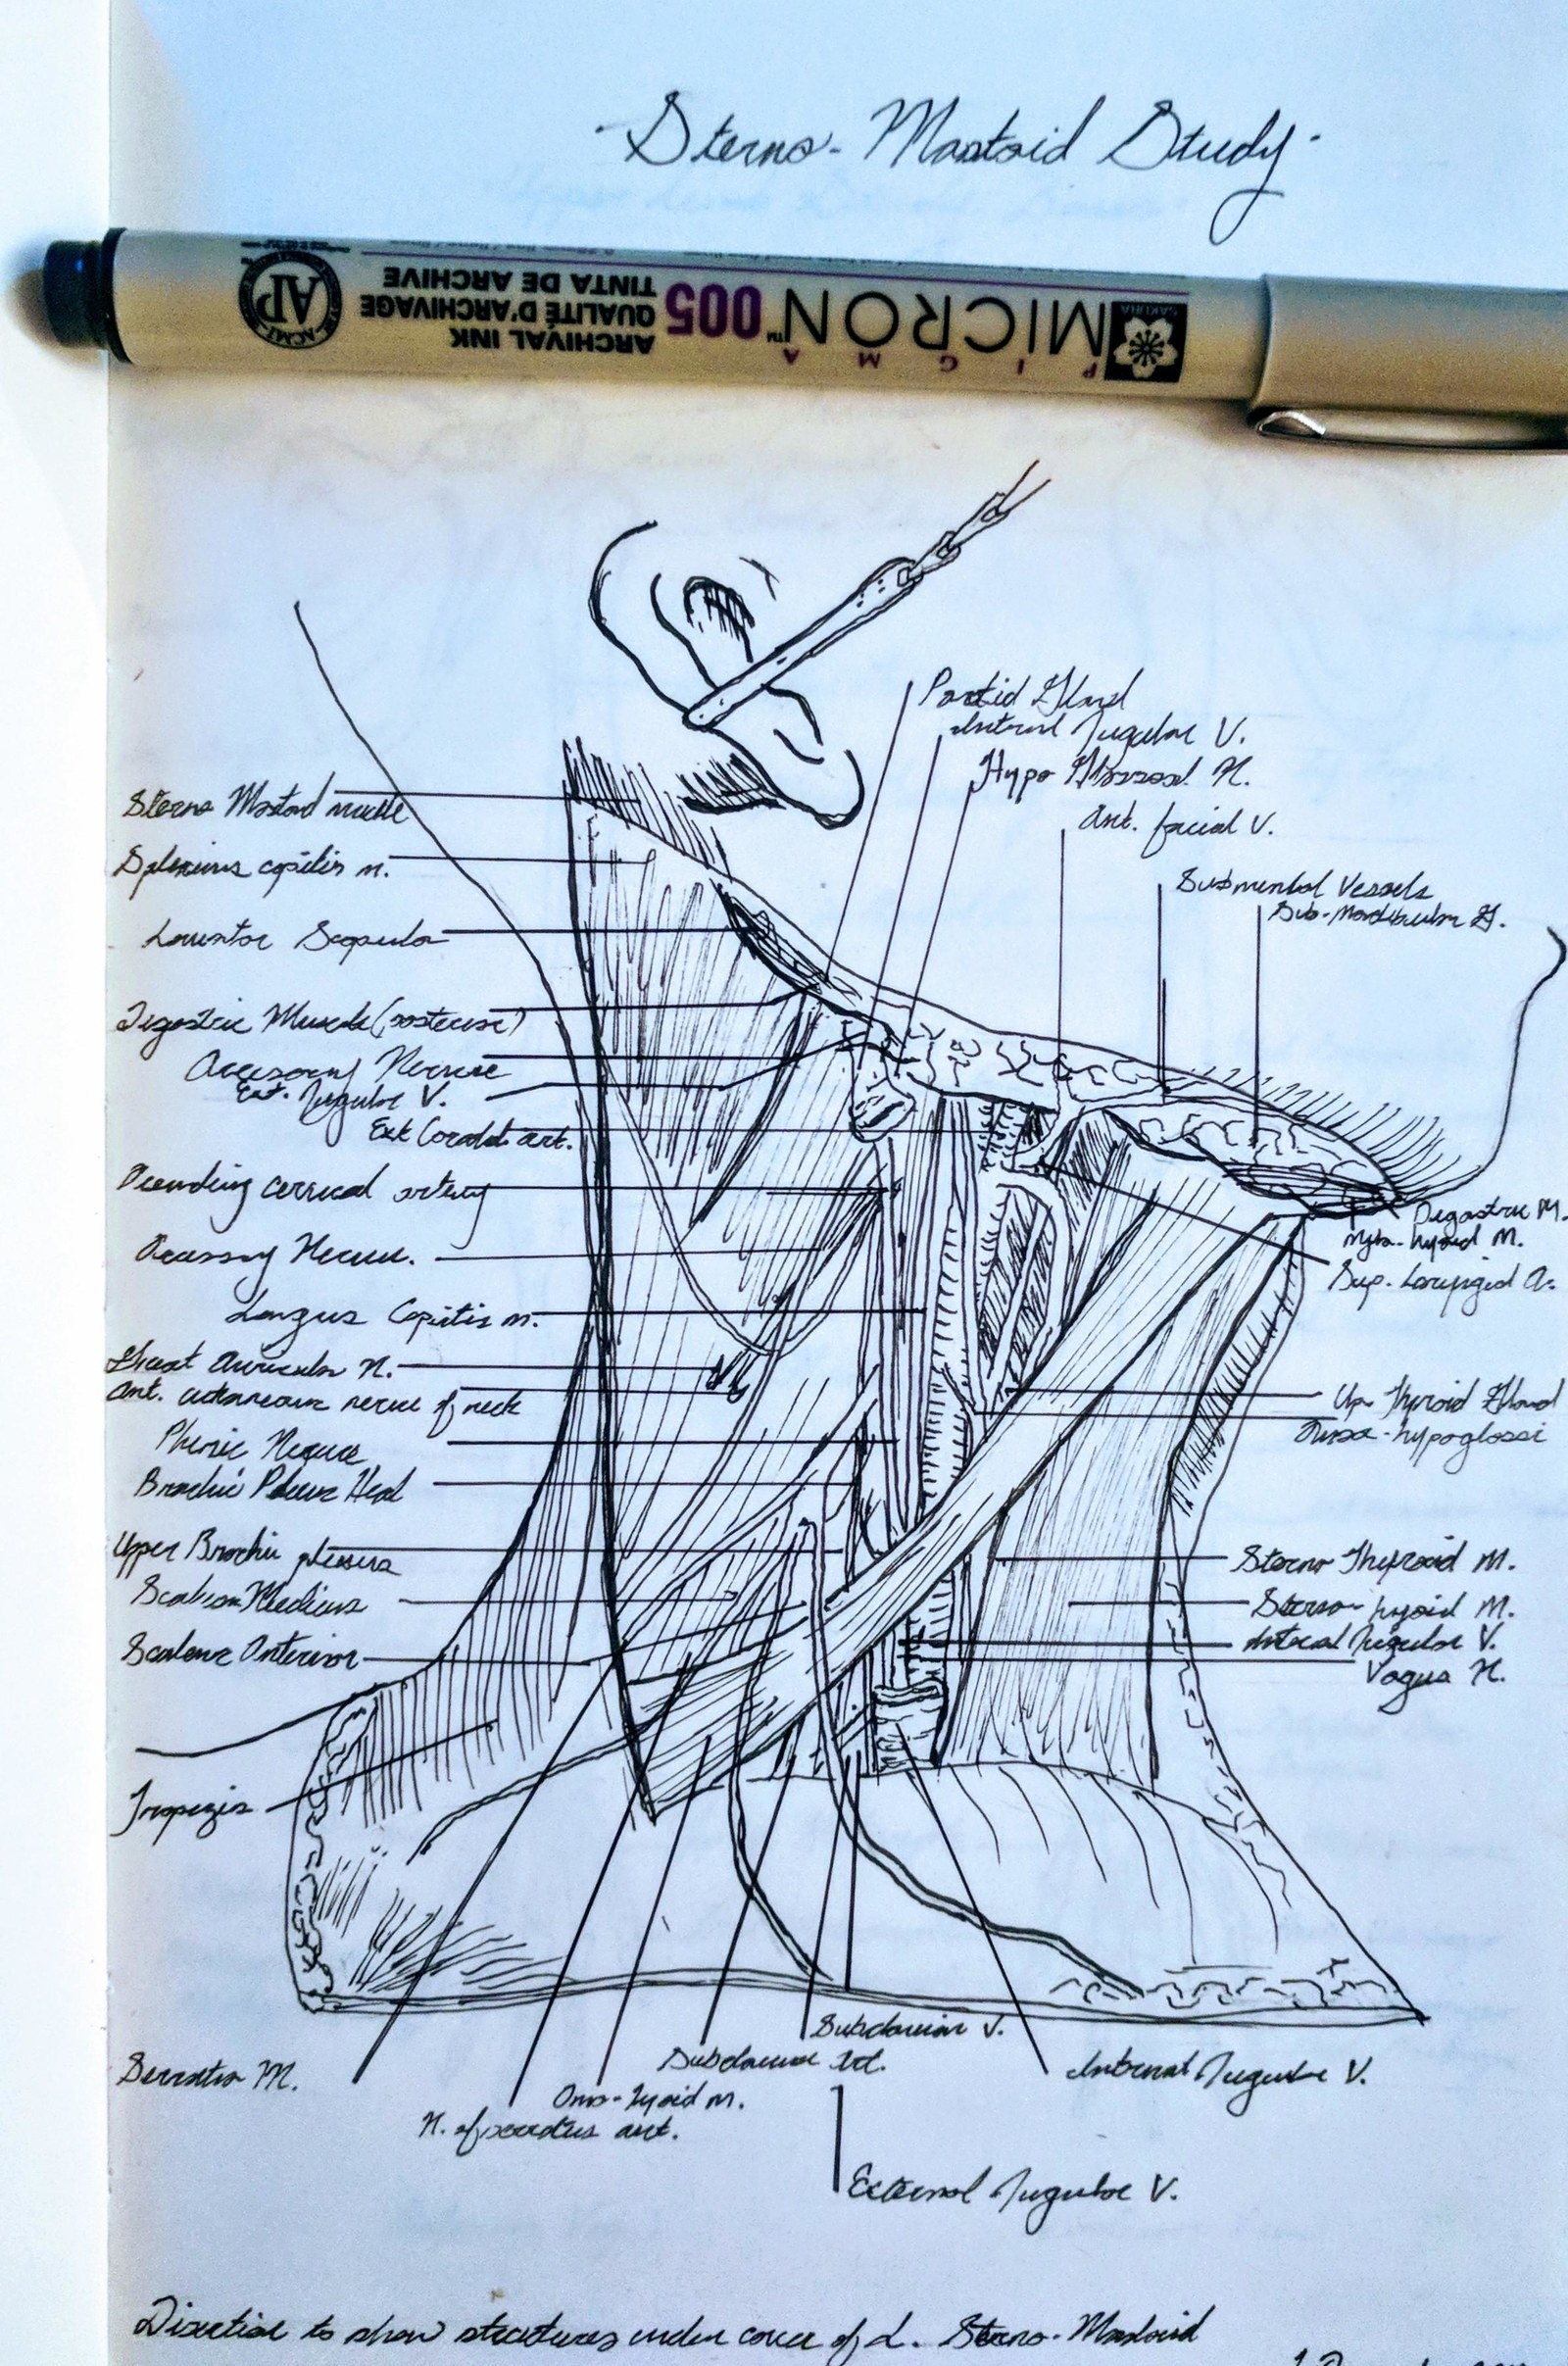 Sterno-Mastoid Study
PIGMA
MICRON™ 005
SAKURA
ARCHIVAL INK
QUALITÉ D'ARCHIVAGE
TINTA DE ARCHIVE
AP
ACMI
Parotid Gland
Internal Jugular V.
Hypo Glossal N.
Ant. facial V.
Submental Vessels
Sub-Mandibular G.
Sterno Mastoid muscle
Splenius capitis m.
Levator Scapula
Digastric Muscle (posterior)
Accesory Nerve
Ext. Jugular V.
Ext Carotid art.
cervical artery
Nerve.
Longus Capitis m.
Great Auricular N.
Ant. cutaneous nerve of neck
Phrenic Nerve
Brachii Plexus Head
Upper Brachii plexus
Scalene Medius
Scalene Anterior
Trapezius
Digastric M.
Mylo-hyoid M.
Sup. Laryngeal A.
Thyroid Gland
Ansa-hypoglossi
Sterno Thyroid M.
Sterno-hyoid M.
Internal Jugular V.
Vagus N.
Serratus M.
N. of serratus ant.
Omo-hyoid m.
Subclavian Art.
Subclavian V.
Internal Jugular V.
External Jugular V.
to show structures under cover of L. Sterno-Mastoid